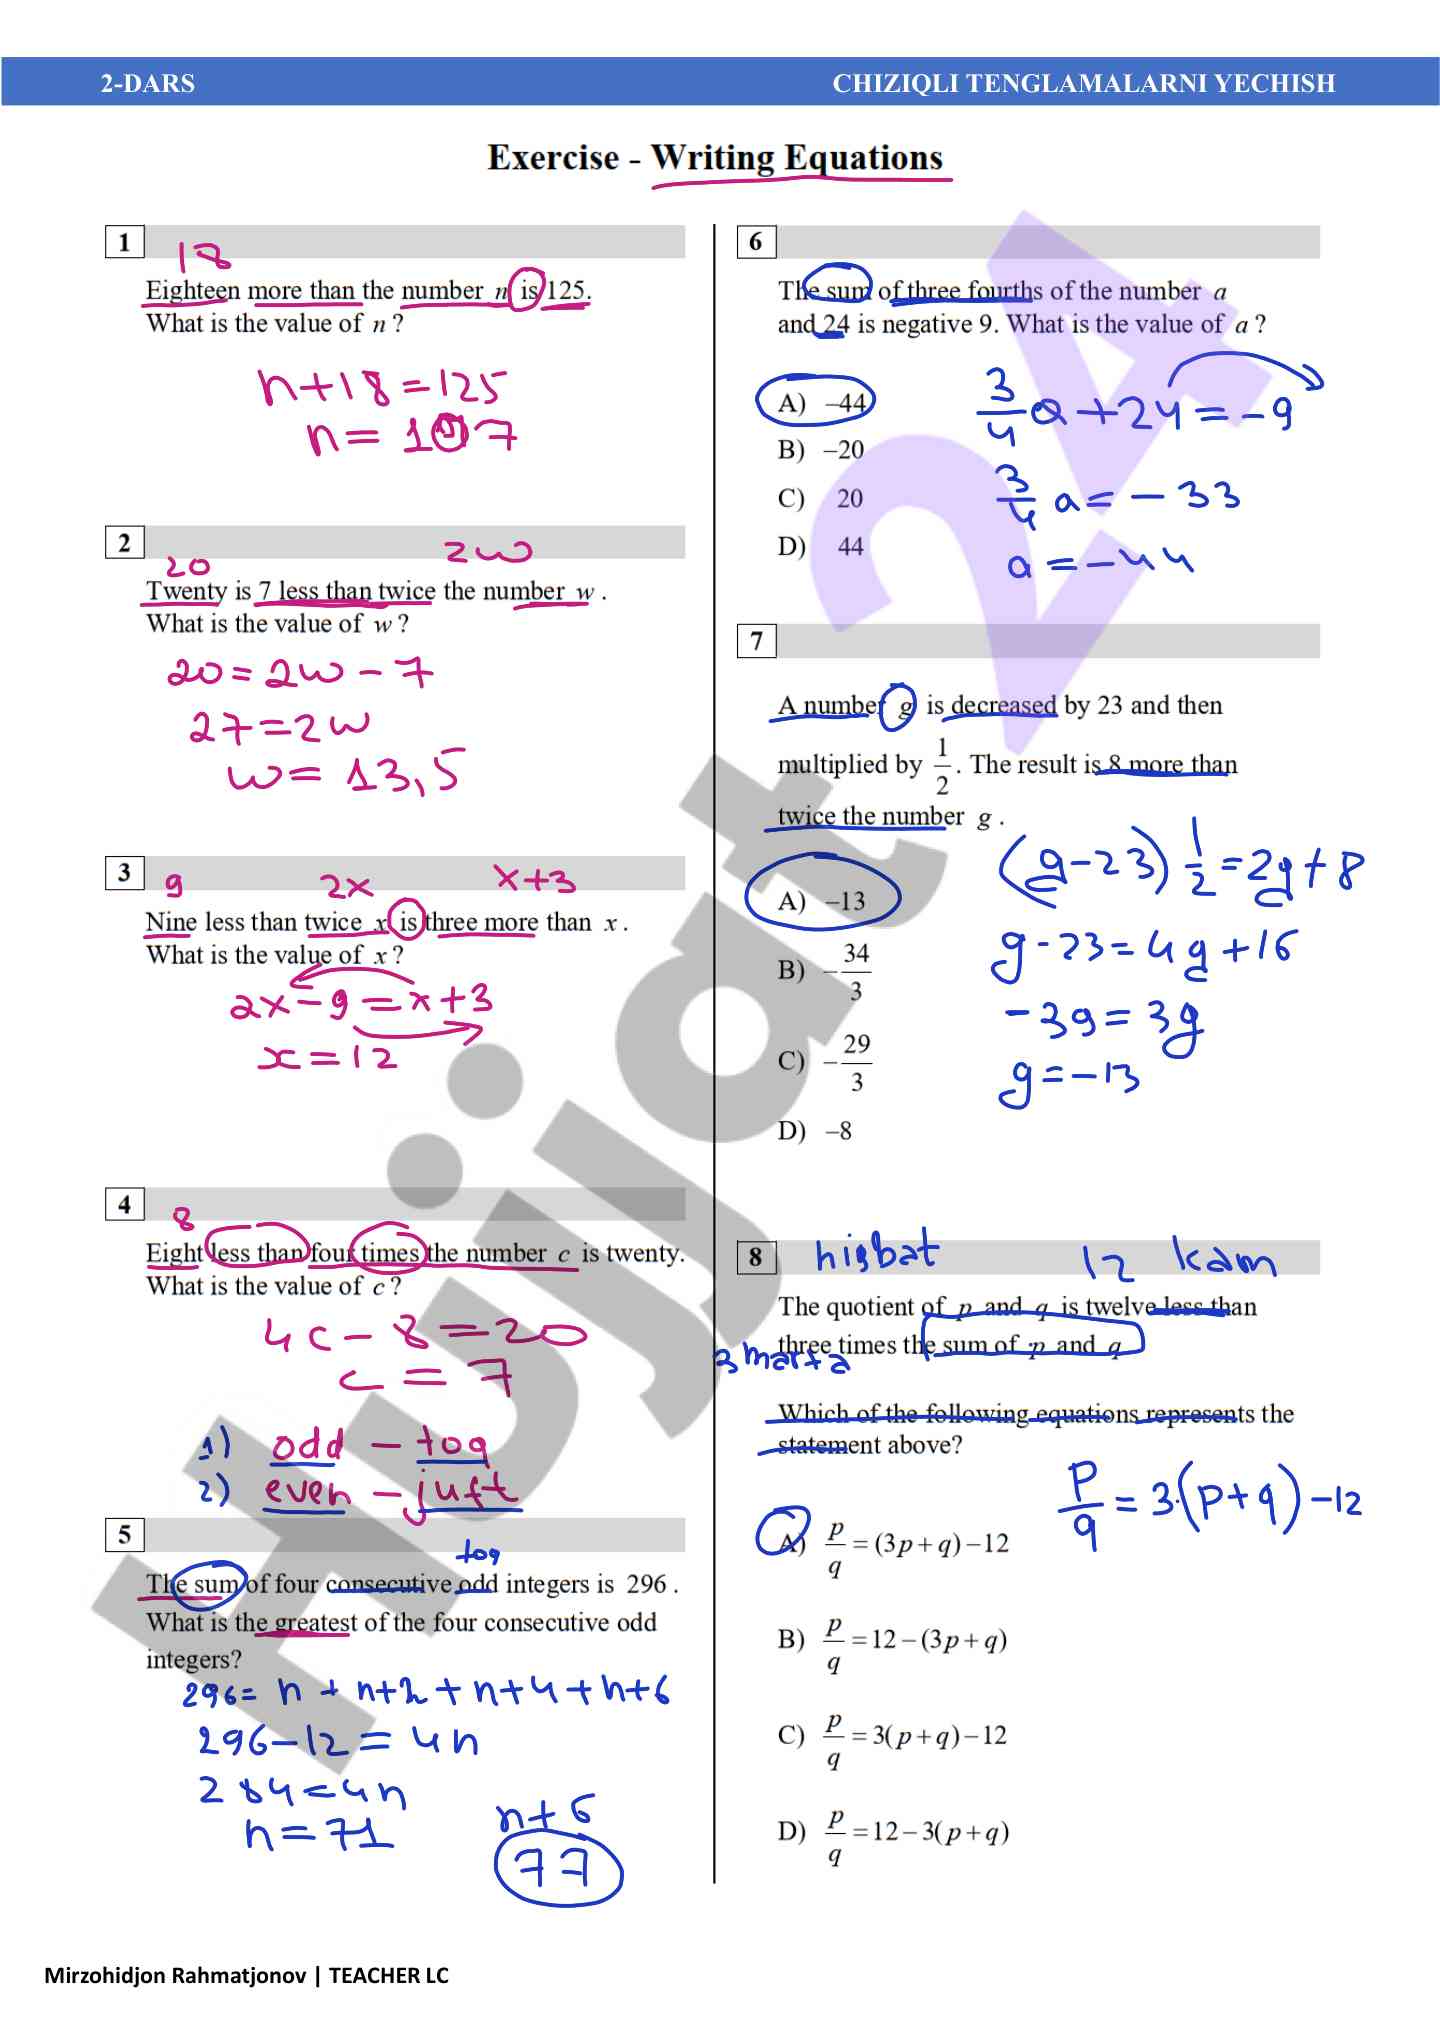 2-DARS CHIZIQLI TENGLAMALARNI YECHISH
Exercise - Writing Equations
1
18
Eighteen more than the number n is 125.
What is the value of n ?
n+18=125
n= 107
2
20 2w
Twenty is 7 less than twice the number w .
What is the value of w ?
20=2w-7
27=2w
w= 13,5
3
9 2x x+3
Nine less than twice x is three more than x .
What is the value of x ?
2x-9=x+3
x=12
4
8
Eight less than four times the number c is twenty.
What is the value of c ?
4c-8=20
c=7
1) odd - toq
2) even - juft
5
toq
The sum of four consecutive odd integers is 296 .
What is the greatest of the four consecutive odd
integers?
296= n + n+2 + n+4 + n+6
296-12=4n
284=4n
n=71
n+6
77
6
The sum of three fourths of the number a
and 24 is negative 9. What is the value of a ?
A) –44
B) –20
C) 20
D) 44
3/4 a+24=-9
3/4 a=-33
a=-44
7
A number g is decreased by 23 and then
multiplied by 1/2 . The result is 8 more than
twice the number g .
A) –13
B) -34/3
C) -29/3
D) –8
(g-23) 1/2=2g+8
g-23=4g+16
-39=3g
g=-13
8
nisbat 12 kam
The quotient of p and q is twelve less than
three times the sum of p and q
3 marta
Which of the following equations represents the
statement above?
p/q=3·(p+q)-12
A) p/q=(3p+q)-12
B) p/q=12-(3p+q)
C) p/q=3(p+q)-12
D) p/q=12-3(p+q)
Hujjat 24
Mirzohidjon Rahmatjonov | TEACHER LC